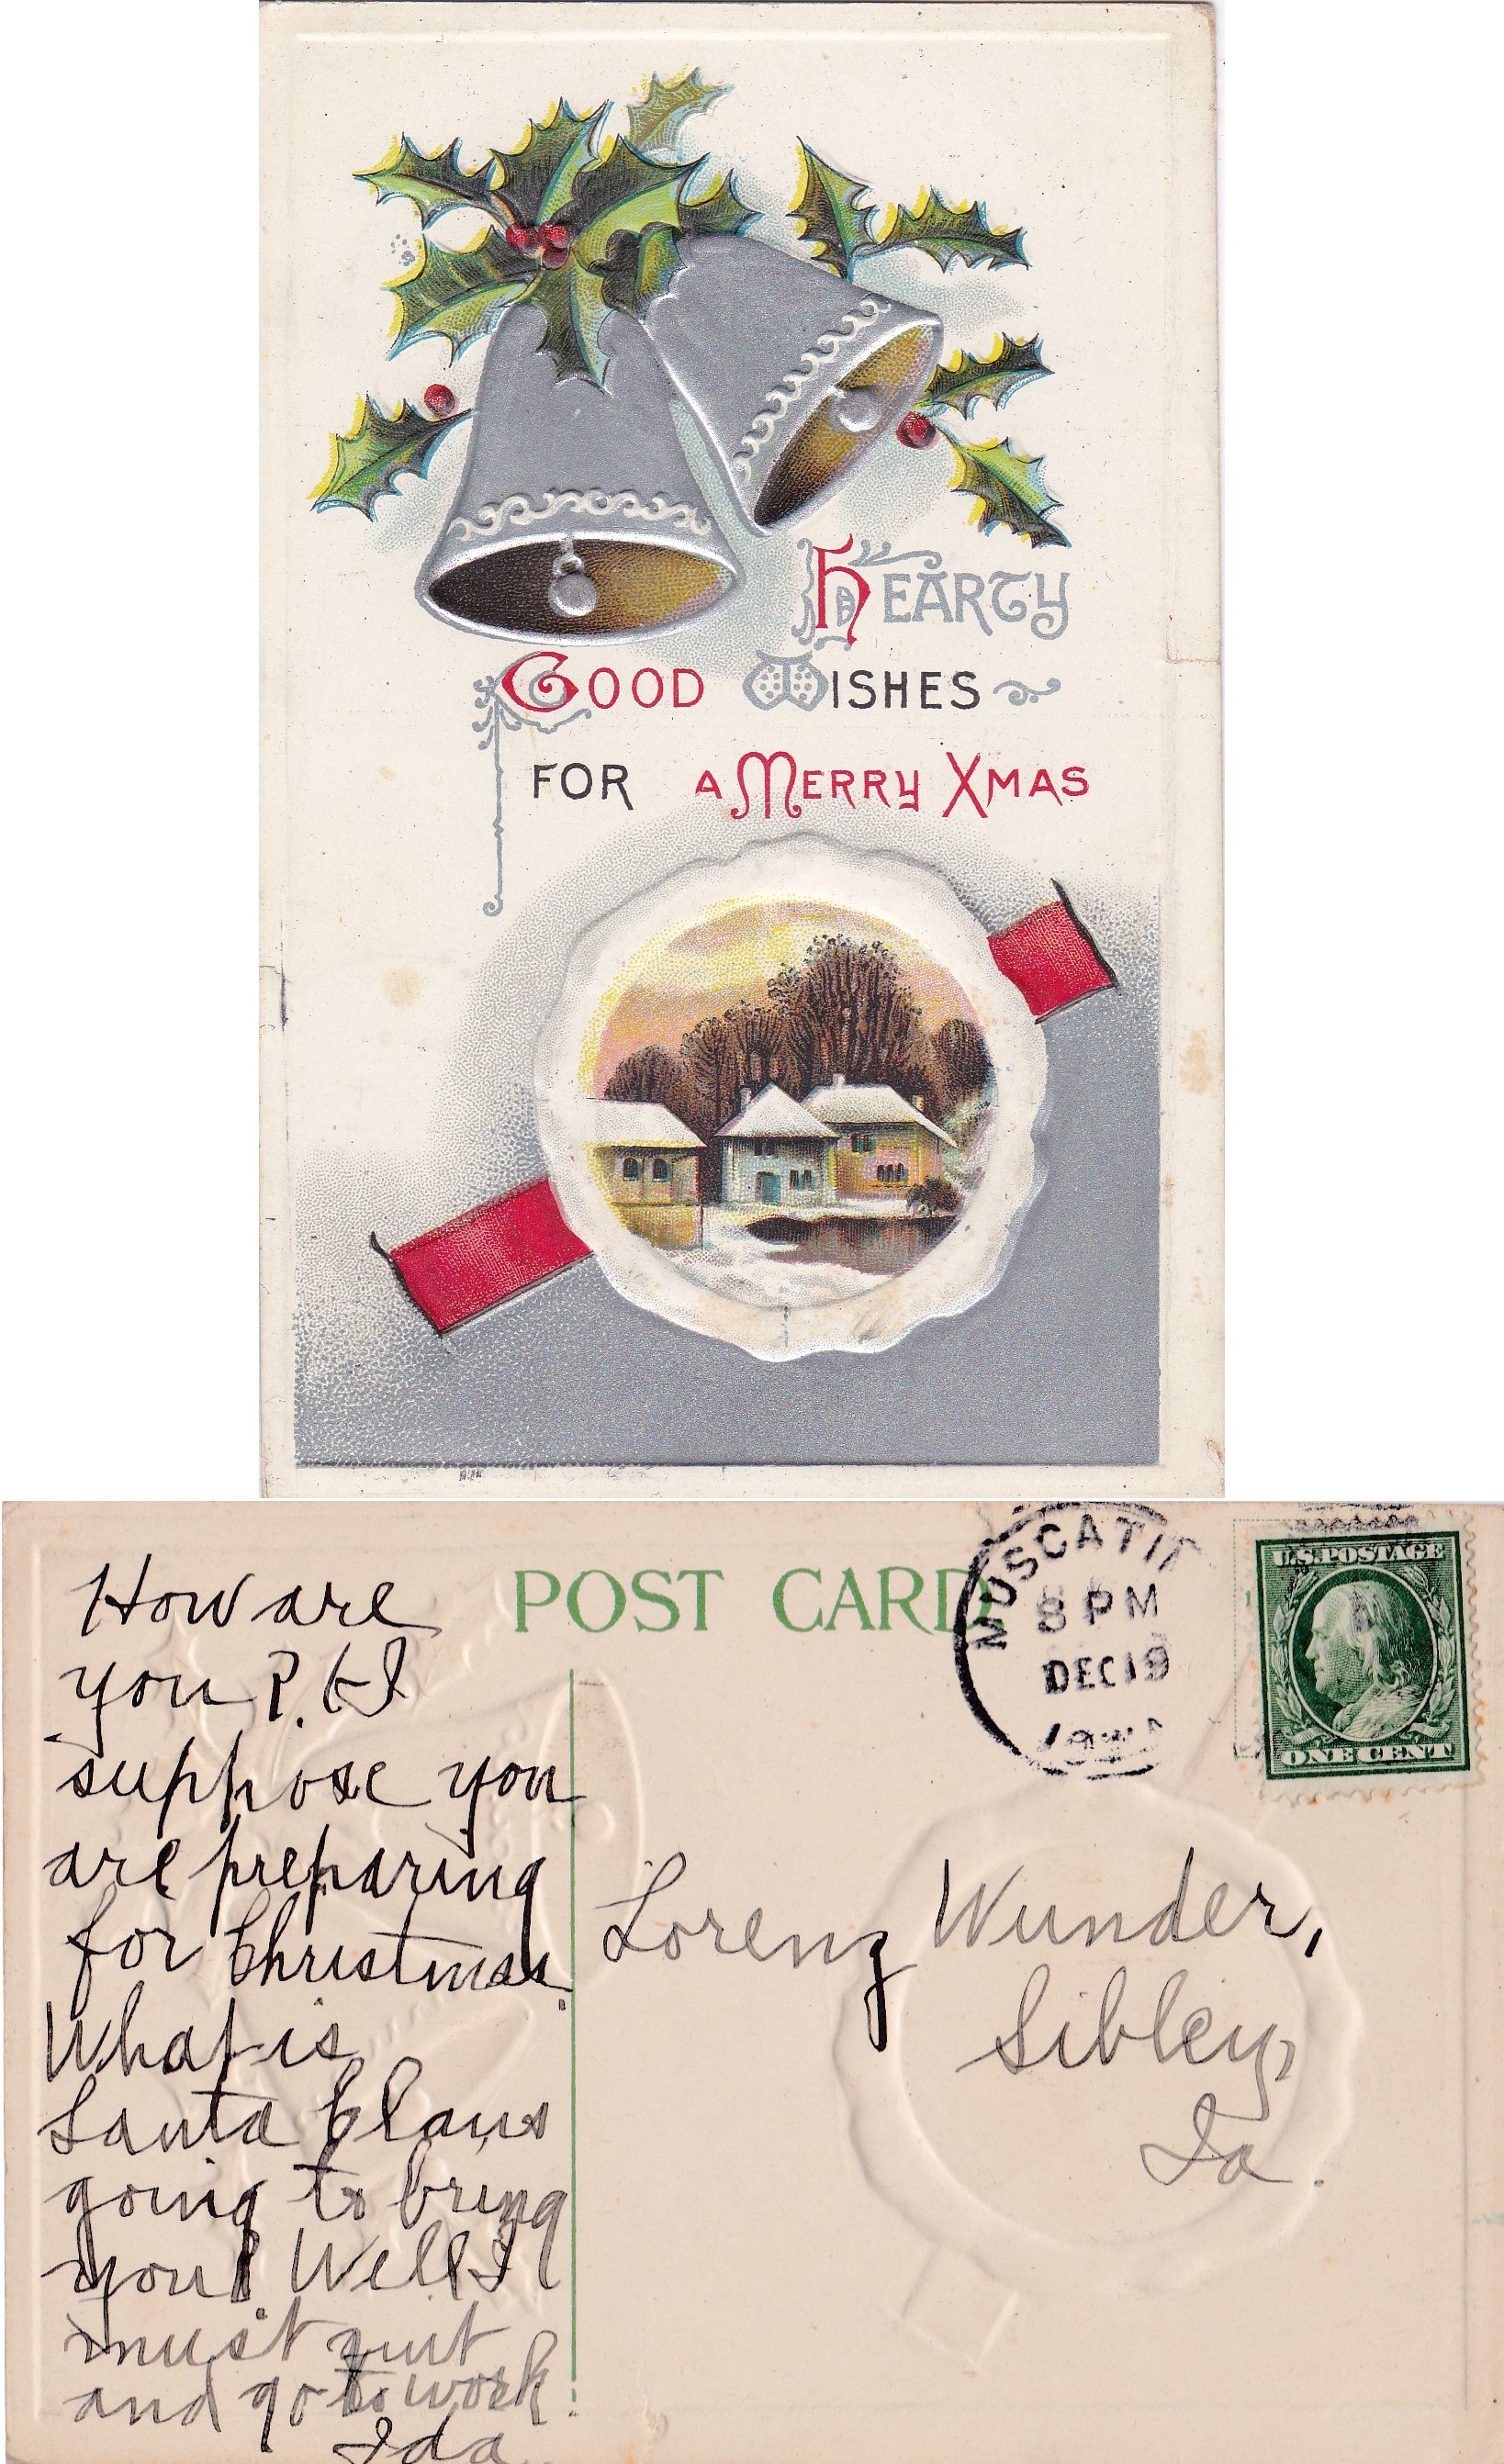 Hearty
Good Wishes
for a Merry Xmas
How are
you?
suppose you
are preparing
for Christmas.
What is
Santa Claus
going to bring
you? Well I
must quit
and go to work.
Ida
POST CARD
MUSCATIN
8 PM
DEC 19
IOWA
U.S. POSTAGE
ONE CENT
Lorenz Wunder,
Sibley,
Ia.